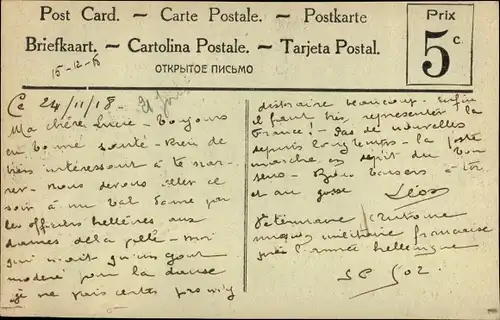 Post Card. — Carte Postale. — Postkarte
Briefkaart. — Cartolina Postale. — Tarjeta Postal.
ОТКРЫТОЕ ПИСЬМО
Prix
5 c.
15-12-18
Ce 24/11/18 -
Ma chère Lucie - Toujours
en bonne santé - Rien de
très intéressant à te nar-
rer - nous devons aller ce
soir à un bal donné par
les officiers hellènes aux
dames de la ville - moi
qui n'ait qu'un gout
modéré pour la danse
je ne puis certes pas m'y
distraire beaucoup. Enfin
il faut très représenter la
France! - Pas de nouvelles
depuis longtemps - la poste
marche en dépit du bon
sens - Bons baisers à toi
et au gosse
Léon
Vétérinaire
mission militaire française
près l'armée hellénique
S.P. 502.